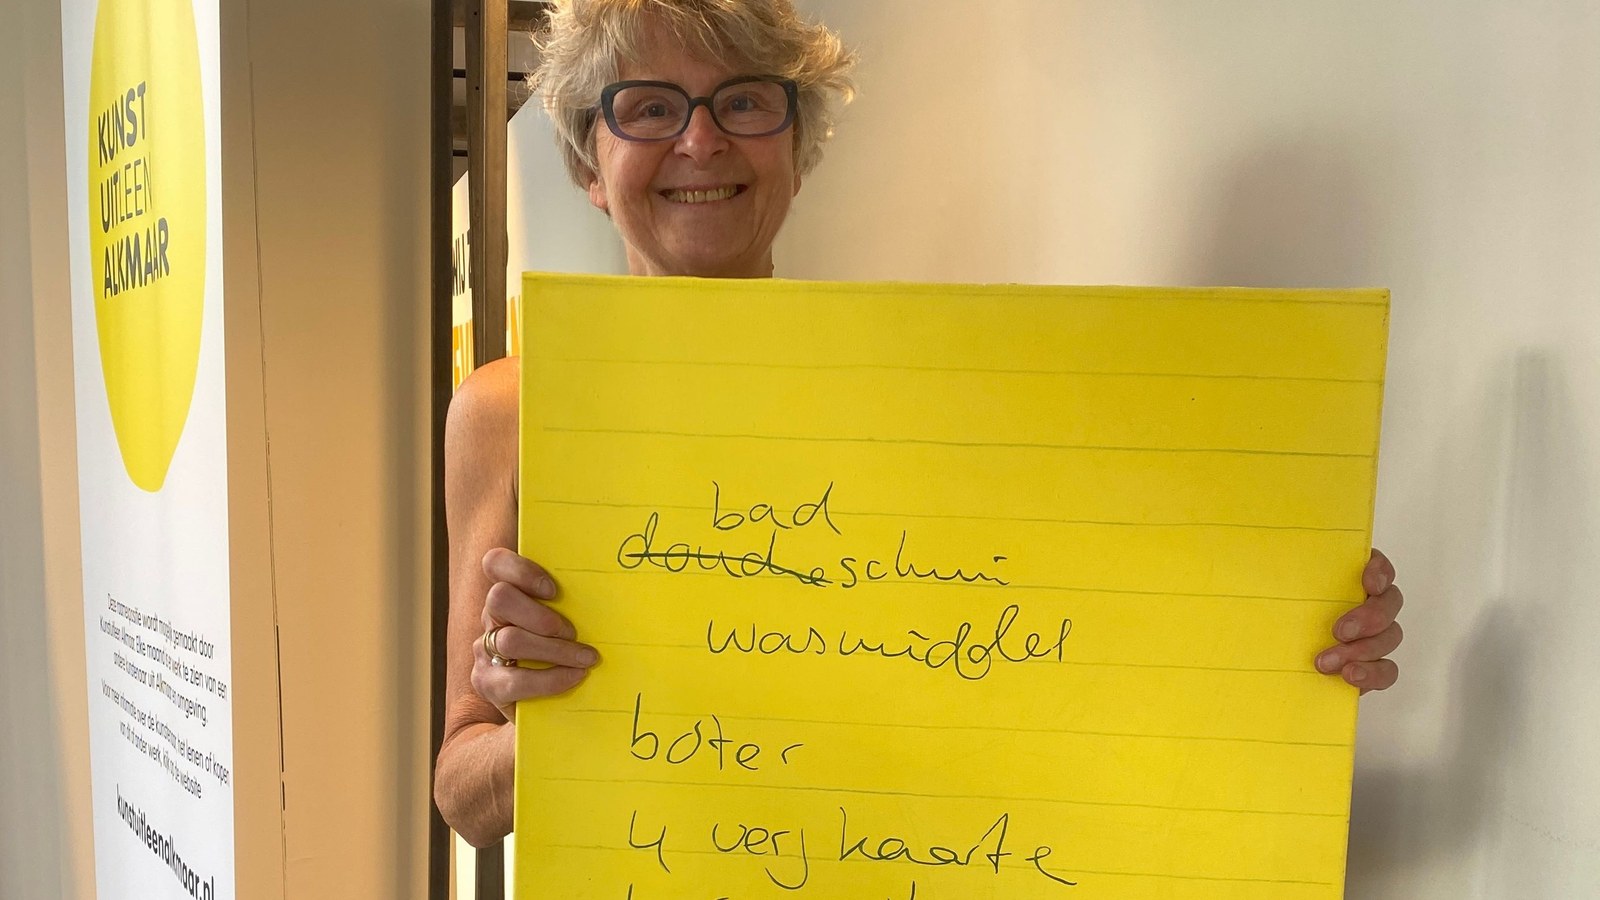 KUNST
UITLEEN
ALKMAAR
Deze namenpositie wordt mogelijk gemaakt door
Kunstuitleen Alkmaar. Elke maand is werk te zien van een
andere kunstenaar uit Alkmaar en omgeving.
Voor meer informatie over de kunstenaar, het lenen of kopen
van dit of ander werk, kijk op de website
kunstuitleenalkmaar.nl
WIJ Z
bad
doucheschui
wasmiddel
boter
4 verjkaarte